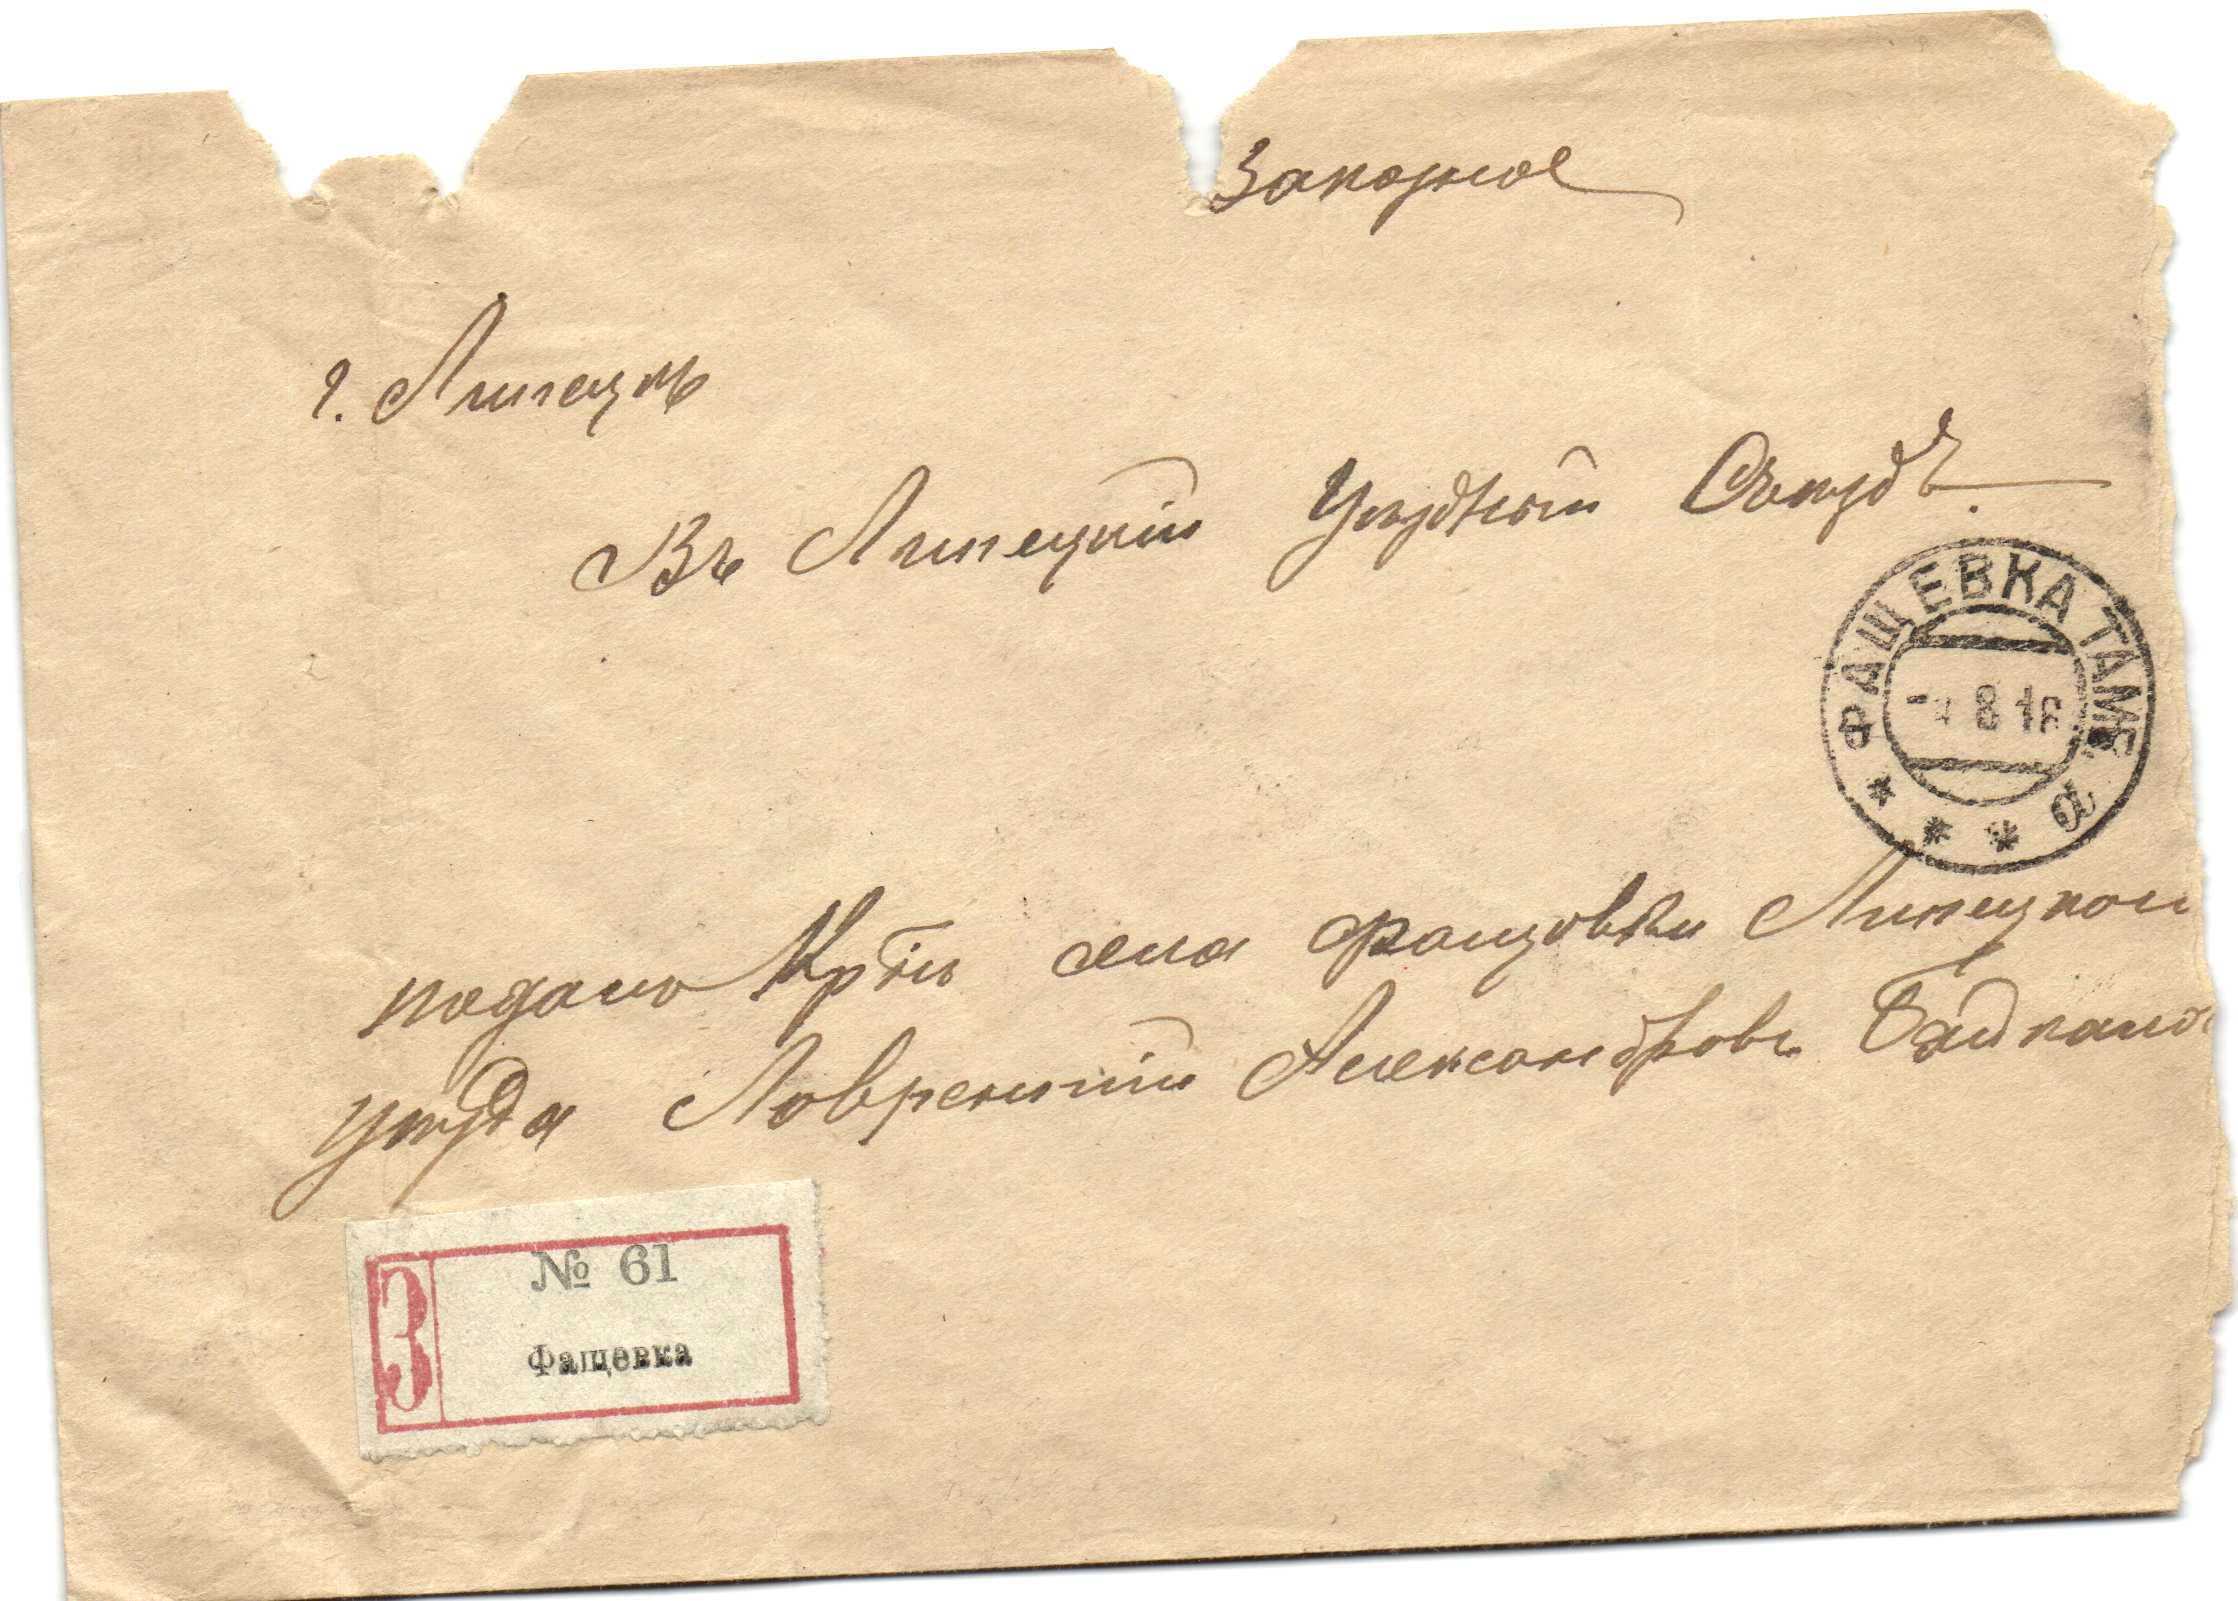 Заказное
г. Липецкъ
Въ Липецкій Уѣздный Съѣздъ.
ФАЩЕВКА ТАМБ.
8 16
подано Кр-нъ села Фащовки Липецкаго
уѣзда Лаврентій Александровъ
№ 61
З
Фащевка